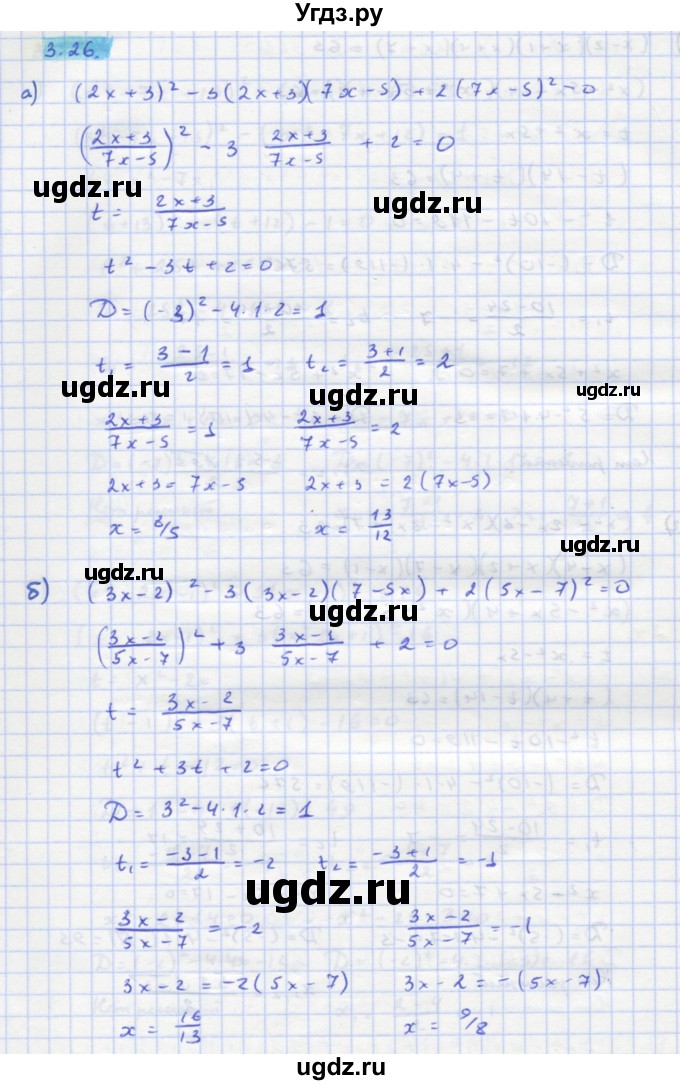 Угдз.ру
3.26.
а) (2x+3)² - 3(2x+3)(7x-5) + 2(7x-5)² - 0
((2x+3)/(7x-5))² - 3 (2x+3)/(7x-5) + 2 = 0
ugdz.ru ugdz.ru
t = (2x+3)/(7x-5)
ugdz.ru
t² - 3t + 2 = 0
D = (-3)² - 4·1·2 = 1
t₁ = (3-1)/2 = 1 t₂ = (3+1)/2 = 2
ugdz.ru ugdz.ru
(2x+3)/(7x-5) = 1 (2x+3)/(7x-5) = 2
ugdz.ru
2x+3 = 7x-5 2x+3 = 2(7x-5)
x = 8/5 x = 13/12
б) (3x-2)² - 3(3x-2)(7-5x) + 2(5x-7)² = 0
ugdz.ru ugdz.ru
((3x-2)/(5x-7))² + 3 (3x-1)/(5x-7) + 2 = 0
t = (3x-2)/(5x-7)
ugdz.ru
t² + 3t + 2 = 0
D = 3² - 4·1·2 = 1
ugdz.ru
t₁ = (-3-1)/2 = -2 t₂ = (-3+1)/2 = -1
ugdz.ru
(3x-2)/(5x-7) = -2 (3x-2)/(5x-7) = -1
ugdz.ru ugdz.ru
3x-2 = -2(5x-7) 3x-2 = -(5x-7)
x = 16/13 x = 9/8
ugdz.ru